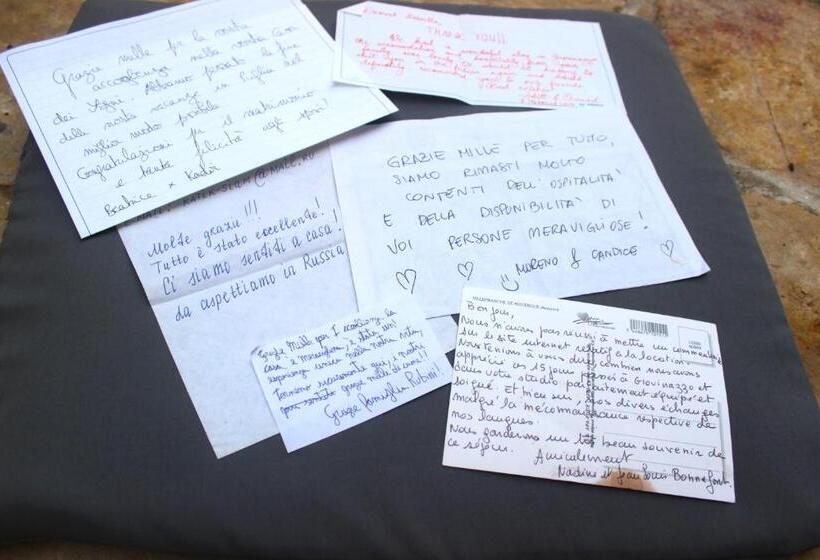 Grazie mille per la vostra
accoglienza nella vostra Casa
dei Sogni. Abbiamo passato la fine
della nostra vacanza in Puglia nel
miglio modo possibile
Congratulazioni per il matrimonio
e tanta felicità agli sposi!
Beatrice x Kadir
THANK YOU!!
@MAIL.RU
Molte grazie!!!
Tutto è stato eccellente!
Ci siamo sentiti a casa!
da aspettiamo in Russia
GRAZIE MILLE PER TUTTO,
SIAMO RIMASTI MOLTO
CONTENTI DELL'OSPITALITÀ
E DELLA DISPONIBILITÀ DI
VOI PERSONE MERAVIGLIOSE!
MORENO & CANDICE
Grazie Mille per l'accoglienza, la
casa è meravigliosa, è stata un'
esperienza unica nella nostra vita,
Torneremo sicuramente qui, i nostri
grazie mille di cuore!!
Grazie famiglia Rubini!
VILLEFRANCHE DE ROUERGUE
Bonjour,
Nous n'avons pas réussi à mettre un commentaire
sur le site internet relatif à la location.
Nous tenions à vous dire combien nous avons
apprécié ces 15 jours passés ici à Giovinazzo et
dans votre studio parfaitement équipé et
soigné. Et bien sûr, nos divers échanges
malgré la méconnaissance respective de
nos langues.
Nous garderons un très beau souvenir de
ce séjour.
Amicalement
Nadine et Jean Louis Bonnefont.